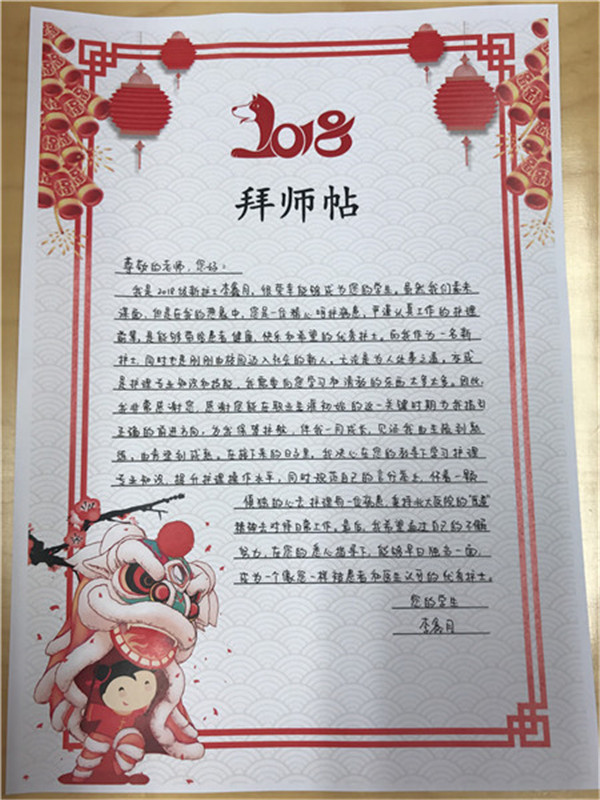 2018
拜师帖
尊敬的老师，您好：
我是2018级新护士李鑫月，很荣幸能够成为您的学生。虽然我们素未
谋面，但是在我的想象中，您是一位精心呵护病患，严谨认真工作的护理
前辈，是能够带给患者健康、快乐和希望的优秀护士。而我作为一名新
护士，同时也是刚刚由校园迈入社会的新人，无论是为人处事之道，亦或
是护理专业知识和技能，我需要向您学习和请教的东西太多太多。因此，
我非常感谢您，感谢您能在职业生涯初始的这一关键时期为我指引
正确的前进方向，为我保驾护航，伴我一同成长，见证我由生疏到熟
练，由希望到成熟。在接下来的日子里，我决心在您的教导下学习护理
专业知识，提升护理操作水平，同时规范自己的言行举止，怀着一颗
慎独的心去护理每一位病患，秉持北大医院的“厚道”
精神去对待日常工作。最后，我希望通过自己的不懈
努力，在您的悉心指导下，能够早日独当一面，
成为一个像您一样被患者和医生认可的优秀护士。
您的学生
李鑫月